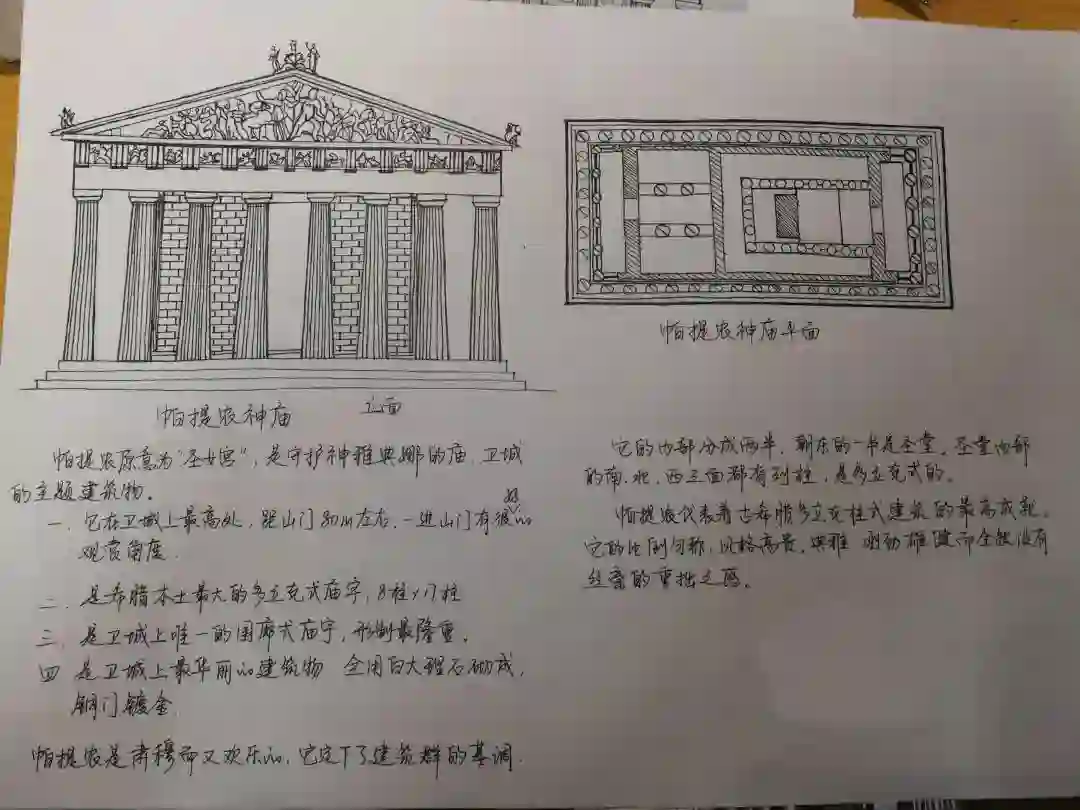 帕提农神庙 立面
帕提农神庙平面
帕提农原意为“圣女宫”，是守护神雅典娜的庙，卫城
的主题建筑物。
一、它在卫城上最高处，距山门80m左右，一进山门有很好的
观赏角度。
二、是希腊本土最大的多立克式庙宇，8柱×17柱
三、是卫城上唯一的围廊式庙宇，形制最隆重。
四 是卫城上最华丽的建筑物 全用白大理石砌成，
铜门镀金
帕提农是肃穆而又欢乐的，它定下了建筑群的基调.
它的内部分成两半，朝东的一半是圣堂。圣堂内部
的南、北，西三面都有列柱，是多立克式的。
帕提农代表着古希腊多立克柱式建筑的最高成就。
它的比例匀称，风格高贵，典雅 刚劲雄健而全然没有
丝毫的重拙之感。